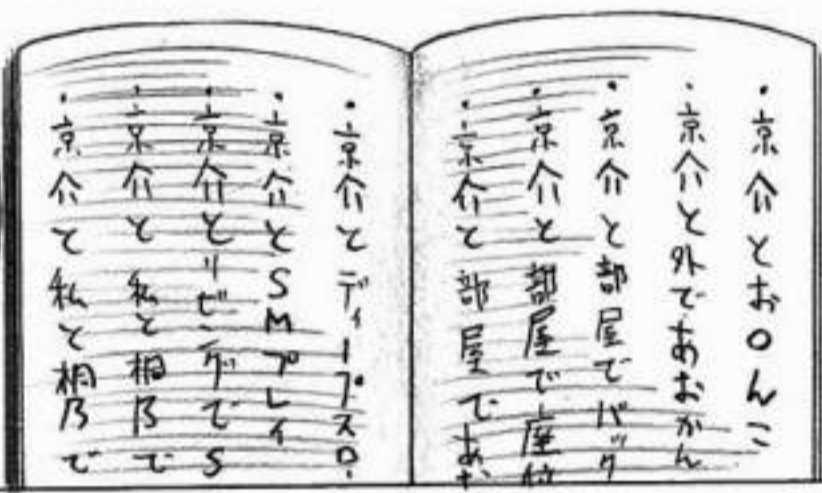 ・京介とお〇んこ
・京介と外であおかん
・京介と部屋でバック
・京介と部屋で座位
・京介と部屋であお
・京介とディープスロ
・京介とSMプレイ
・京介とリビングでS
・京介と私と桐乃で
・京介と私と桐乃で